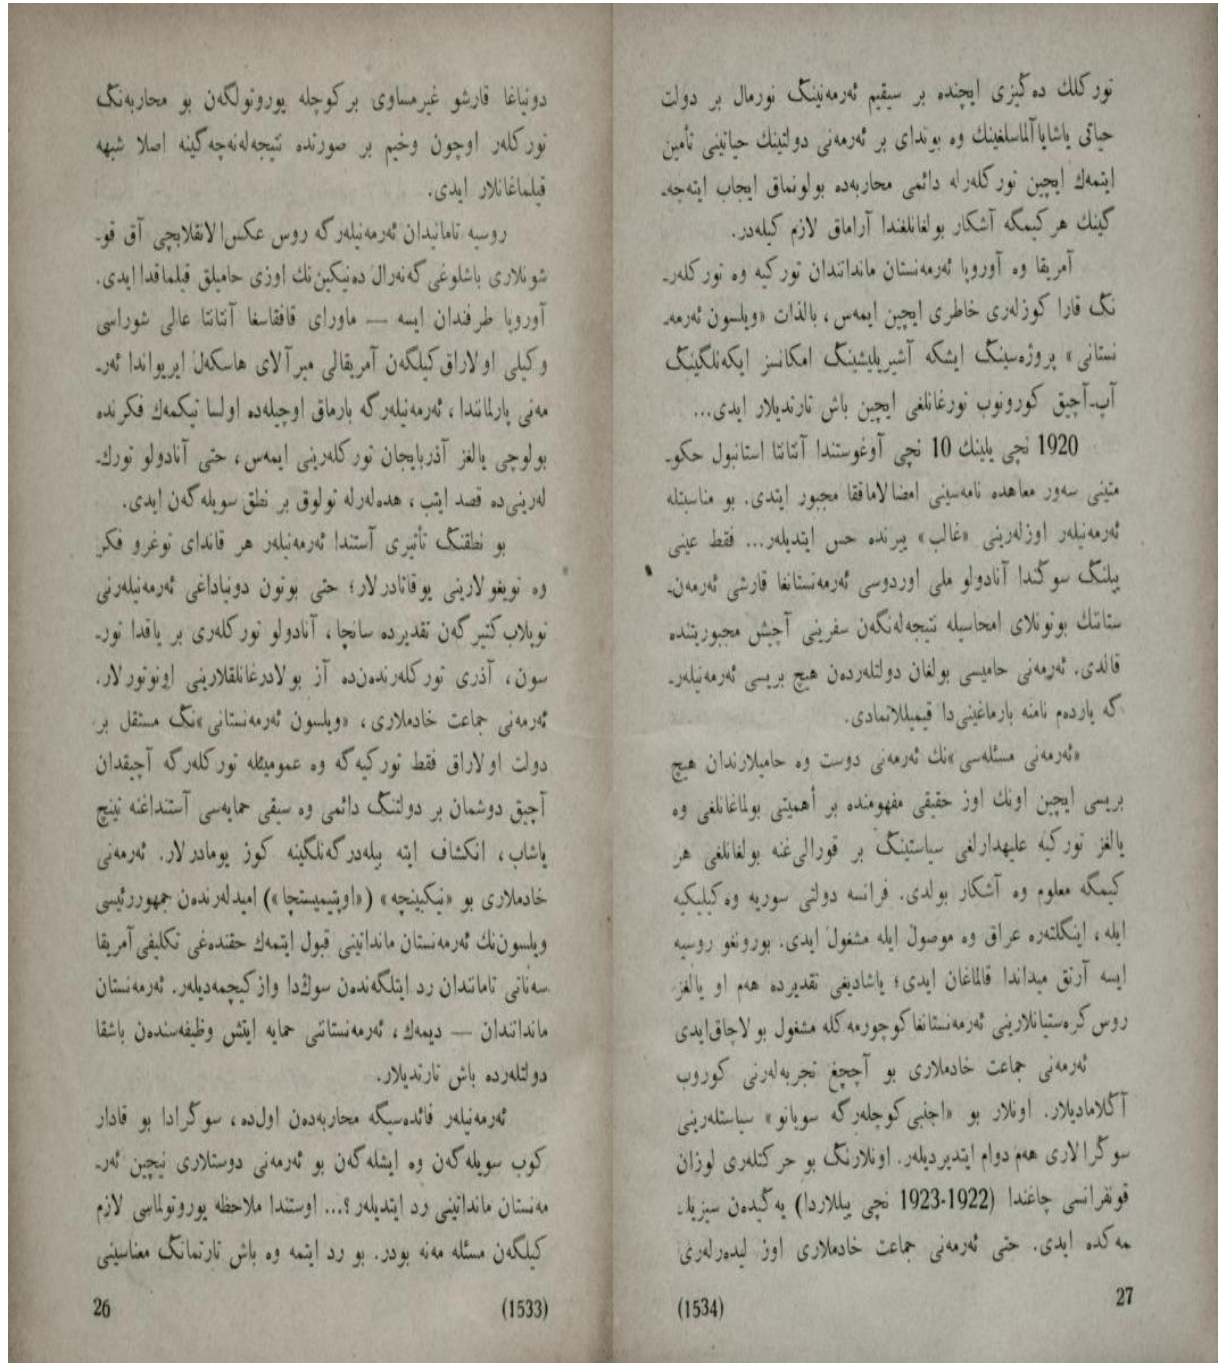 دونیاغا قارشو غیرمساوی بر کوچله یوروتولگەن بو محاربەنڭ
تورکلەر اوچون وخیم بر صورتدە نتیجەلەنەچەگینە اصلا شبهە
قیلماغانلار ایدی.
روسیە تامانیدان ئەرمەنیلەرگە روس عکس‌الانقلابچی آق قو‌ـ
شونلاری باشلوغی گەنەرال دەنیکین‌نك اوزی حامیلق قیلماقدا ایدی.
آوروپا طرفندان ایسە — ماورای قافقاسغا آنتانتا عالی شوراسی
وکیلی اولاراق کیلگەن آمریقالی میرآلای هاسکەل ایریواندا ئەر‌ـ
مەنی پارلمانتدا، ئەرمەنیلەرگە بارماق اوچیلەدە اولسا تیکمەك فکرندە
بولوچی یالغز آذربایجان تورکلەرینی ایمەس، حتی آنادولو تورك‌ـ
لەرینی‌دە قصد ایتب، هدەلەرلە تولوق بر نطق سویلەگەن ایدی.
بو نطقنڭ تأثیری آستندا ئەرمەنیلەر هر قاندای توغرو فکر
وە تویغولارینی یوقاتادرلار؛ حتی بوتون دونیاداغی ئەرمەنیلەرنی
توپلاب کتیرگەن تقدیردە سانچا، آنادولو تورکلەری بر یاقدا تور‌ـ
سون، آذری تورکلەرندەن‌دە آز بولادرغانلقلارینی اونوتورلار.
ئەرمەنی جماعت خادملاری، «ویلسون ئەرمەنستانی»نڭ مستقل بر
دولت اولاراق فقط تورکیەگە وە عمومیتلە تورکلەرگە آچیقدان
آچیق دوشمان بر دولتنڭ دائمی وە سیقی حمایەسی آستنداغنە تینچ
یاشاب، انکشاف ایتە بیلەدرگەنلگینە کوز یومادرلار. ئەرمەنی
خادملاری بو «نیکبینچە» («اوپتیمیستچا») امیدلەرندەن جمهوررئیسی
ویلسون‌نك ئەرمەنستان ماندانتینی قبول ایتمەك حقندەغی تکلیفی آمریقا
سەناتی تامانتدان رد ایتلگەندەن سوڭدا وازکیچمەدیلەر. ئەرمەنستان
ماندانتدان — دیمەك، ئەرمەنستانتی حمایە ایتش وظیفەسندەن باشقا
دولتلەردە باش تارتدیلار.
ئەرمەنیلەر فائدەسیگە محاربەدەن اول‌دە، سوڭرادا بو قادار
کوب سویلەگەن وە ایشلەگەن بو ئەرمەنی دوستلاری نیچین ئەر‌ـ
مەنستان ماندانتینی رد ایتدیلەر؟... اوستندا ملاحظە یوروتولماسی لازم
کیلگەن مسئلە مەنە بودر. بو رد ایتمە وە باش تارتمانڭ معناسینی
26
(1533)
تورکلك دەڭیزی ایچندە بر سیقیم ئەرمەنینڭ نورمال بر دولت
حیاتی یاشایاآلماسلغینك وە بوندای بر ئەرمەنی دولتینك حیاتینی تأمین
ایتمەك ایچین تورکلەرلە دائمی محاربەدە بولونماق ایجاب ایتەجە‌ـ
گینك هر کیمگە آشکار بولغانلغندا آراماق لازم کیلەدر.
آمریقا وە آوروپا ئەرمەنستان ماندانتدان تورکیە وە تورکلەر‌ـ
نڭ قارا کوزلەری خاطری ایچین ایمەس، بالذات «ویلسون ئەرمە‌ـ
نستانی» پروژەسینڭ ایشکە آشیریلیشینڭ امکانسز ایکەنلگینڭ
آپ‌ـآچیق کورونوب تورغانلغی ایچین باش تارتدیلار ایدی...
1920 نچی یلینك 10 نچی آوغوستندا آنتانتا استانبول حکو‌ـ
متینی سەور معاهدە نامەسینی امضالاماققا مجبور ایتدی. بو مناسبتلە
ئەرمەنیلەر اوزلەرینی «غالب» یرندە حس ایتدیلەر... فقط عینی
ییلنڭ سوڭندا آنادولو ملی اوردوسی ئەرمەنستانغا قارشی ئەرمەن‌ـ
ستاننك بوتونلای امحاسیلە نتیجەلەنگەن سفرینی آچیش مجبوریتندە
قالدی. ئەرمەنی حامیسی بولغان دولتلەردەن هیچ بریسی ئەرمەنیلەر‌ـ
گە یاردەم نامنە بارماغینی‌دا قیمیللاتمادی.
«ئەرمەنی مسئلەسی»نك ئەرمەنی دوست وە حامیلارندان هیچ
بریسی ایچین اونك اوز حقیقی مفهومندە بر أهمیتی بولماغانلغی وە
یالغز تورکیە علیهدارلغی سیاستینڭ بر قورالی‌غنە بولغانلغی هر
کیمگە معلوم وە آشکار بولدی. فرانسە دولتی سوریە وە کیلیکیە
ایلە، اینگلتەرە عراق وە موصول ایلە مشغول ایدی. بورونغو روسیە
ایسە آرتق میداندا قالماغان ایدی؛ یاشادیغی تقدیردە هەم او یالغز
روس کرەستیانلارینی ئەرمەنستانغا کوچورمەکلە مشغول بولاچاق‌ایدی
ئەرمەنی جماعت خادملاری بو آچچغ تجربەلەرنی کوروب
آڭلامادیلار. اونلار بو «اجنبی کوچلەرگە سویانو» سیاستلەرینی
سوڭرالاری هەم دوام ایتدیردیلەر. اونلارنڭ بو حرکتلەری لوزان
قونفرانسی چاغندا (1922-1923 نچی ییللاردا) یەڭیدەن سیزیلـ
مەکدە ایدی. حتی ئەرمەنی جماعت خادملاری اوز لیدەرلەری
27
(1534)